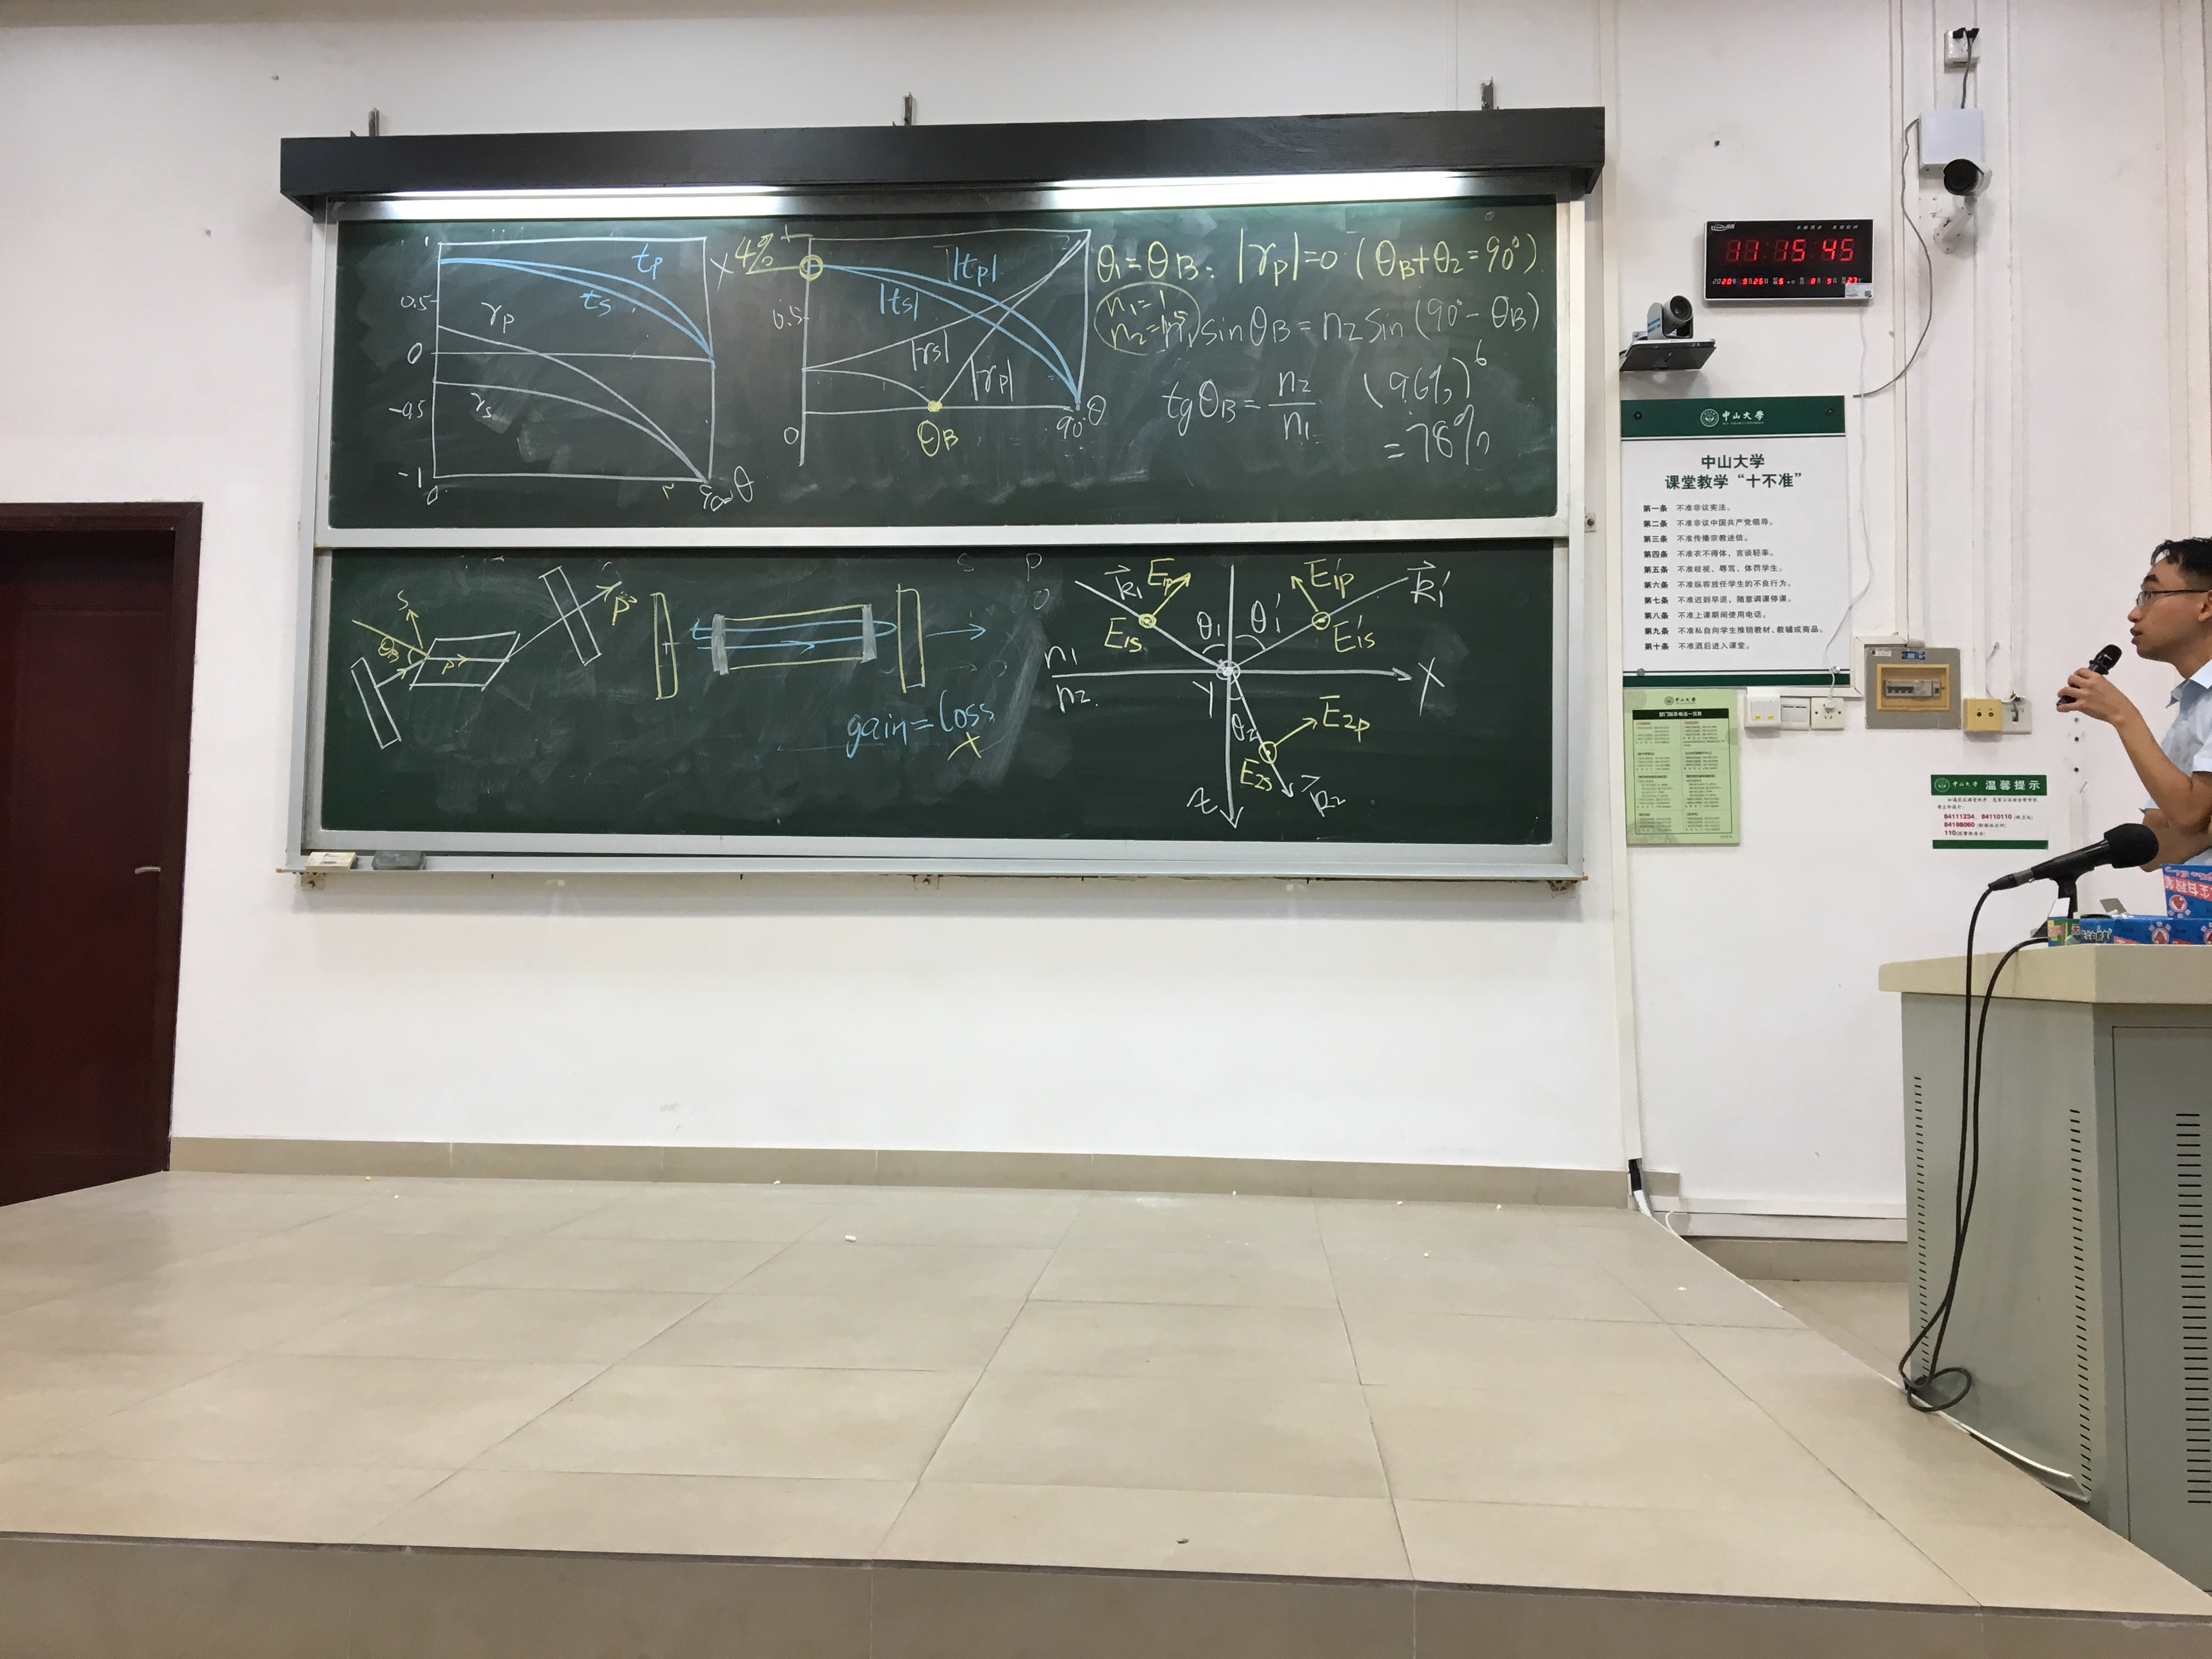 1
0.5
0
-0.5
-1
0
tp
ts
rp
rs
θ
4%
1
0.5
0
|tp|
|ts|
|rs|
|rp|
θB
90° θ
θ1=θB: |rp|=0 (θB+θ2=90°)
n1=1
n2=1.5
n1 sinθB=n2 sin(90°-θB)
tgθB=n2/n1
(96%)^6
=78%
S
θB
P
P
gain=loss
X
S P
k1
E1p
E1s
θ1
θ1'
E1'p
E1's
k1'
n1
n2
X
Y
θ2
E2p
E2s
k2
z
11:15:45
2020年 9月25日
中山大學
中山大学
课堂教学“十不准”
第一条 不准非议宪法。
第二条 不准非议中国共产党领导。
第三条 不准传播宗教迷信。
第四条 不准衣不得体,言谈轻率。
第五条 不准歧视、辱骂、体罚学生。
第六条 不准纵容放任学生的不良行为。
第七条 不准迟到早退,随意调课停课。
第八条 不准上课期间使用电话。
第九条 不准私自向学生推销教材、教辅或商品。
第十条 不准酒后进入课堂。
中山大學
中山大學 温馨提示
84111234、84110110
84198060
110